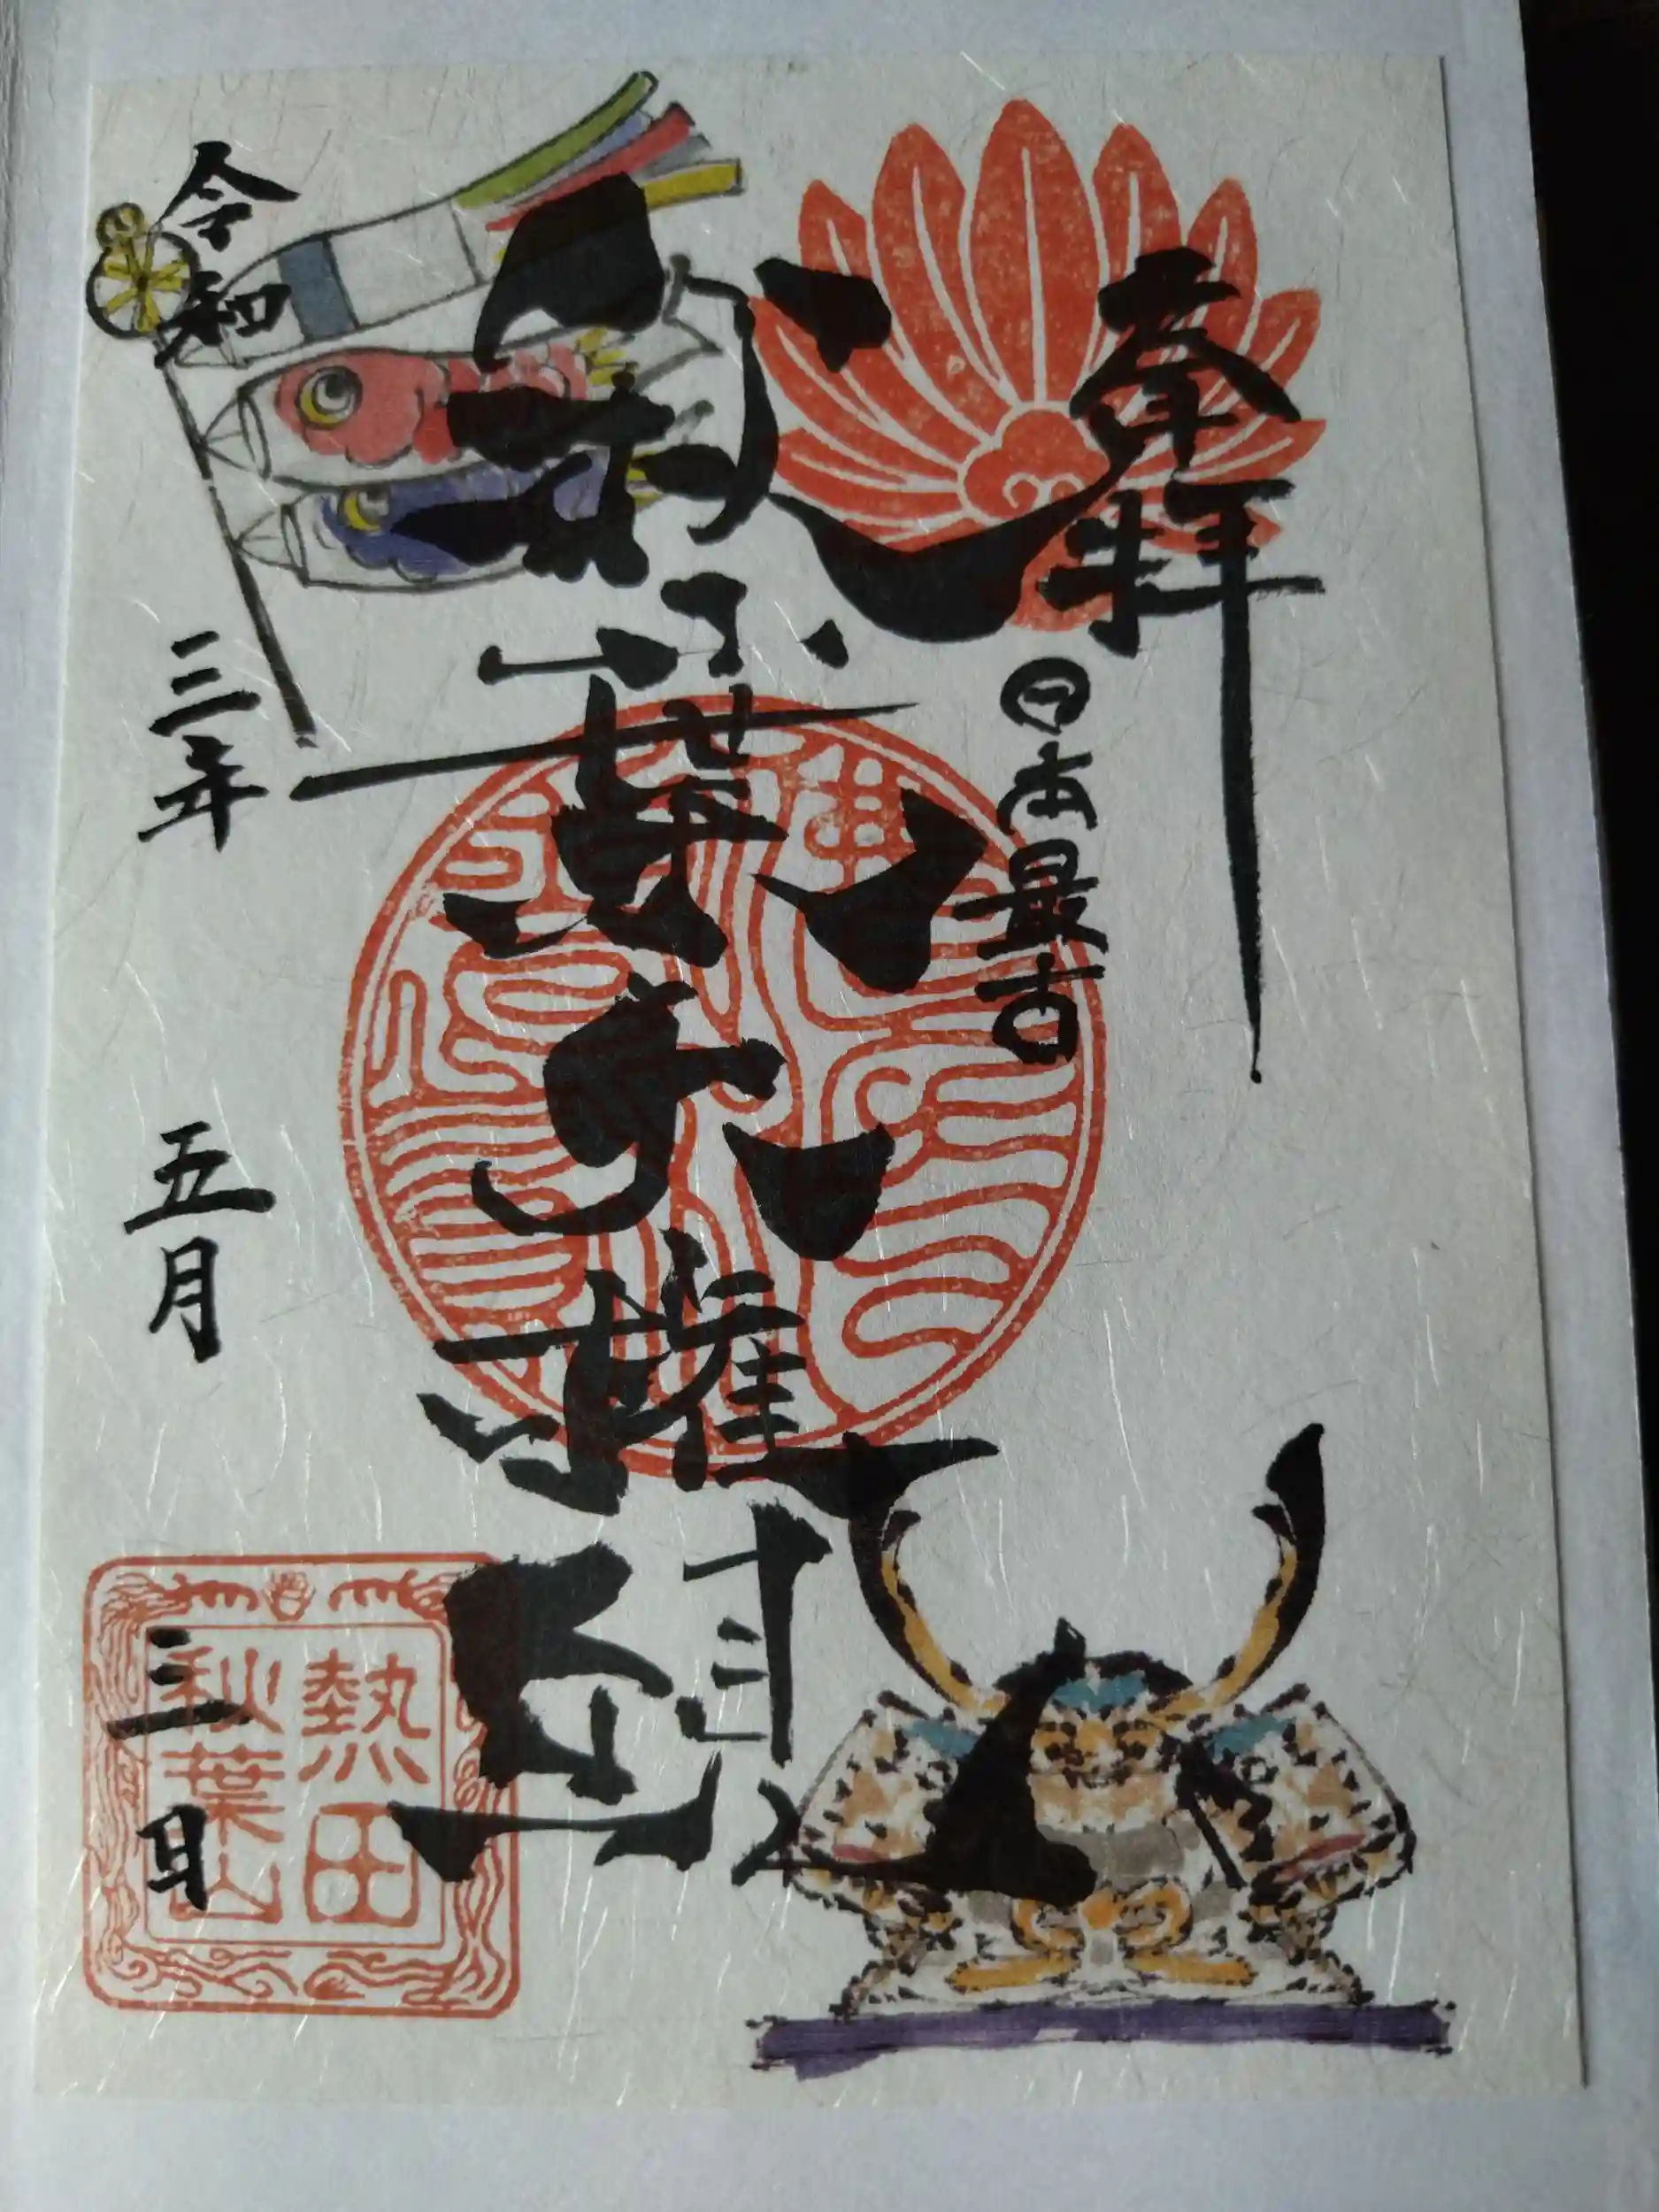 奉拝
日本最古
秋葉大権現
令和三年五月三日
熱田
秋葉山